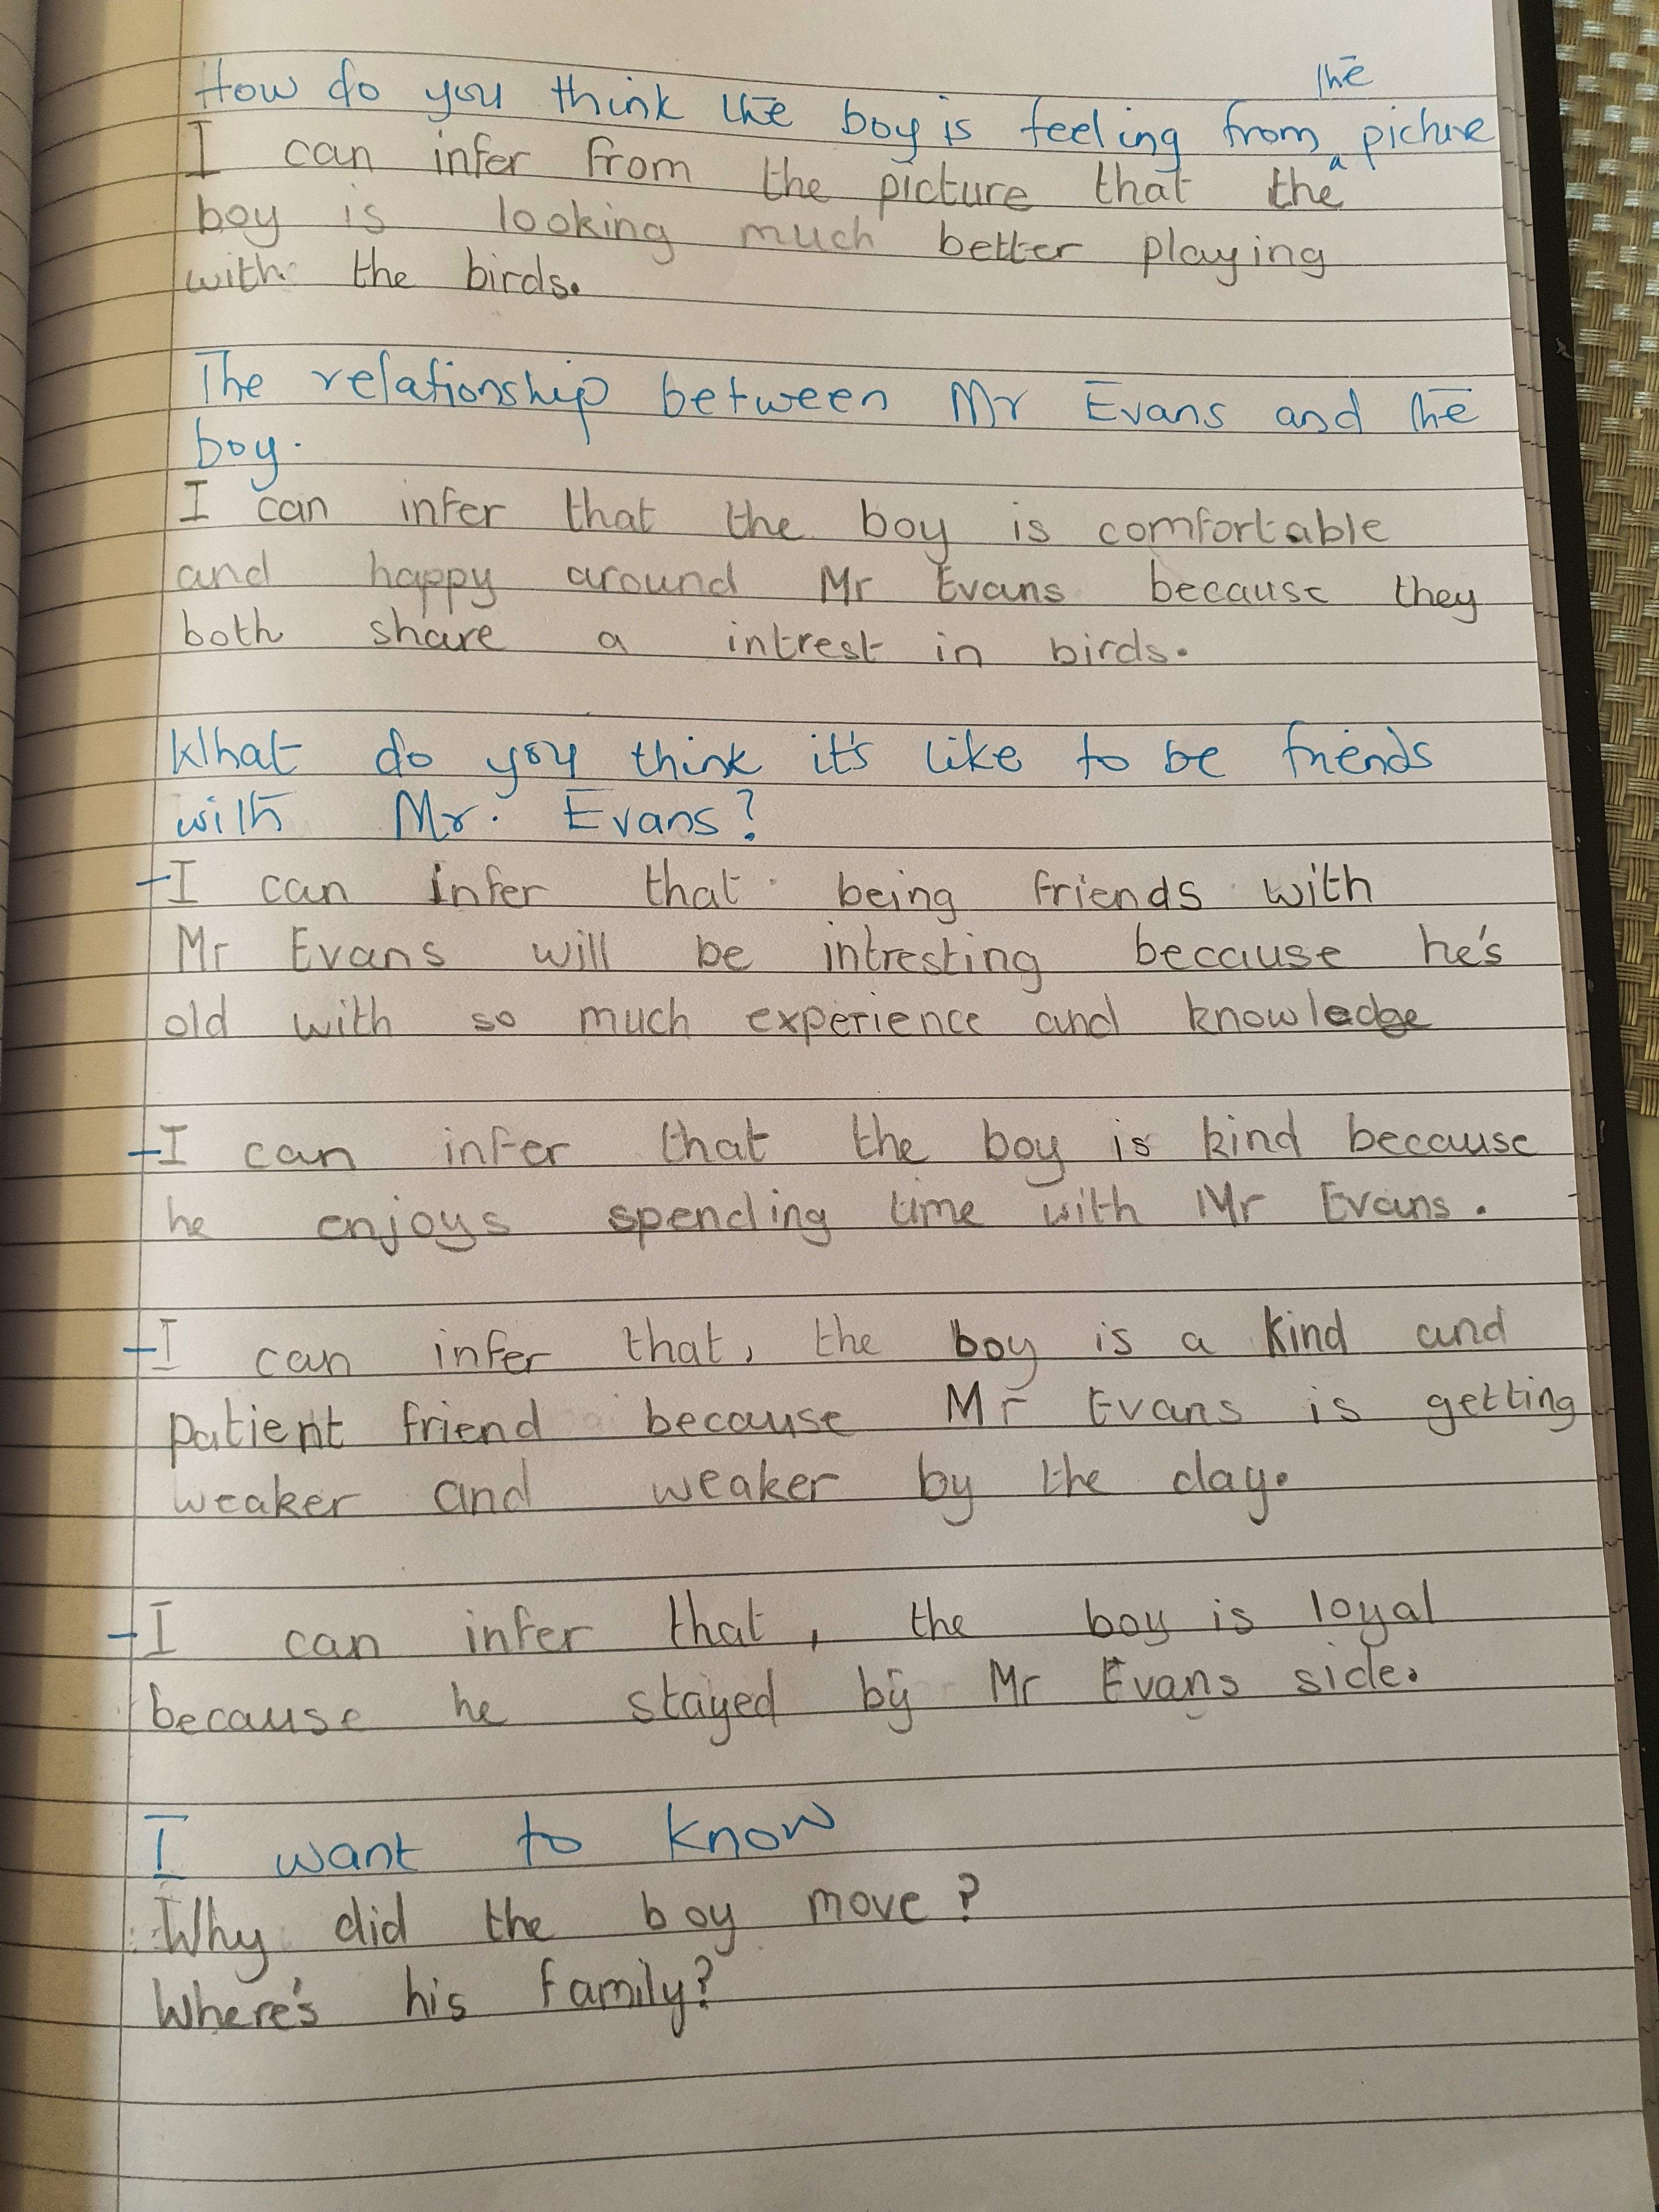 How do you think the boy is feeling from the picture
I can infer from the picture that the
boy is looking much better playing
with the birds.
The relationship between Mr Evans and the
boy.
I can infer that the boy is comfortable
and happy around Mr Evans because they
both share a intrest in birds.
What do you think it's like to be friends
with Mr. Evans?
-I can infer that being friends with
Mr Evans will be intresting because he's
old with so much experience and knowledge
-I can infer that the boy is kind because
he enjoys spending time with Mr Evans.
-I can infer that, the boy is a kind and
patient friend because Mr Evans is getting
weaker and weaker by the day.
-I can infer that, the boy is loyal
because he stayed by Mr Evans side.
I want to know
Why did the boy move?
Where's his family?